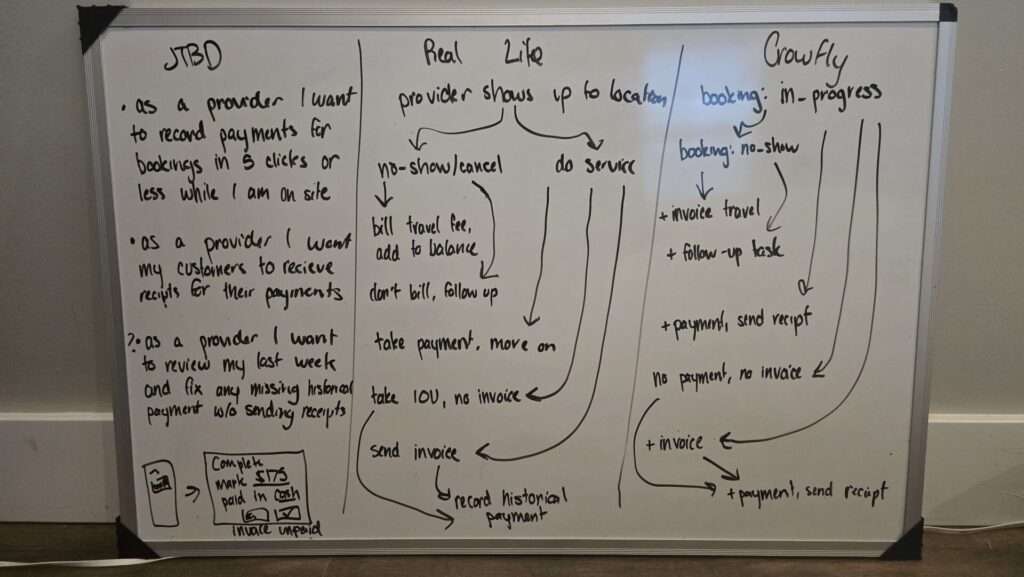 JTBD
• as a provider I want
to record payments for
bookings in 5 clicks or
less while I am on site
• as a provider I want
my customers to recieve
recipts for their payments
?• as a provider I want
to review my last week
and fix any missing historical
payment w/o sending receipts
Complete
mark $175
paid in cash
invoice unpaid
Real Life
provider shows up to location
no-show/cancel
do service
bill travel fee,
add to balance
don't bill, follow up
take payment, move on
take IOU, no invoice
send invoice
record historical
payment
Crowfly
booking: in-progress
booking: no-show
+ invoice travel
+ follow-up task
+ payment, send recipt
no payment, no invoice
+ invoice
+ payment, send recipt